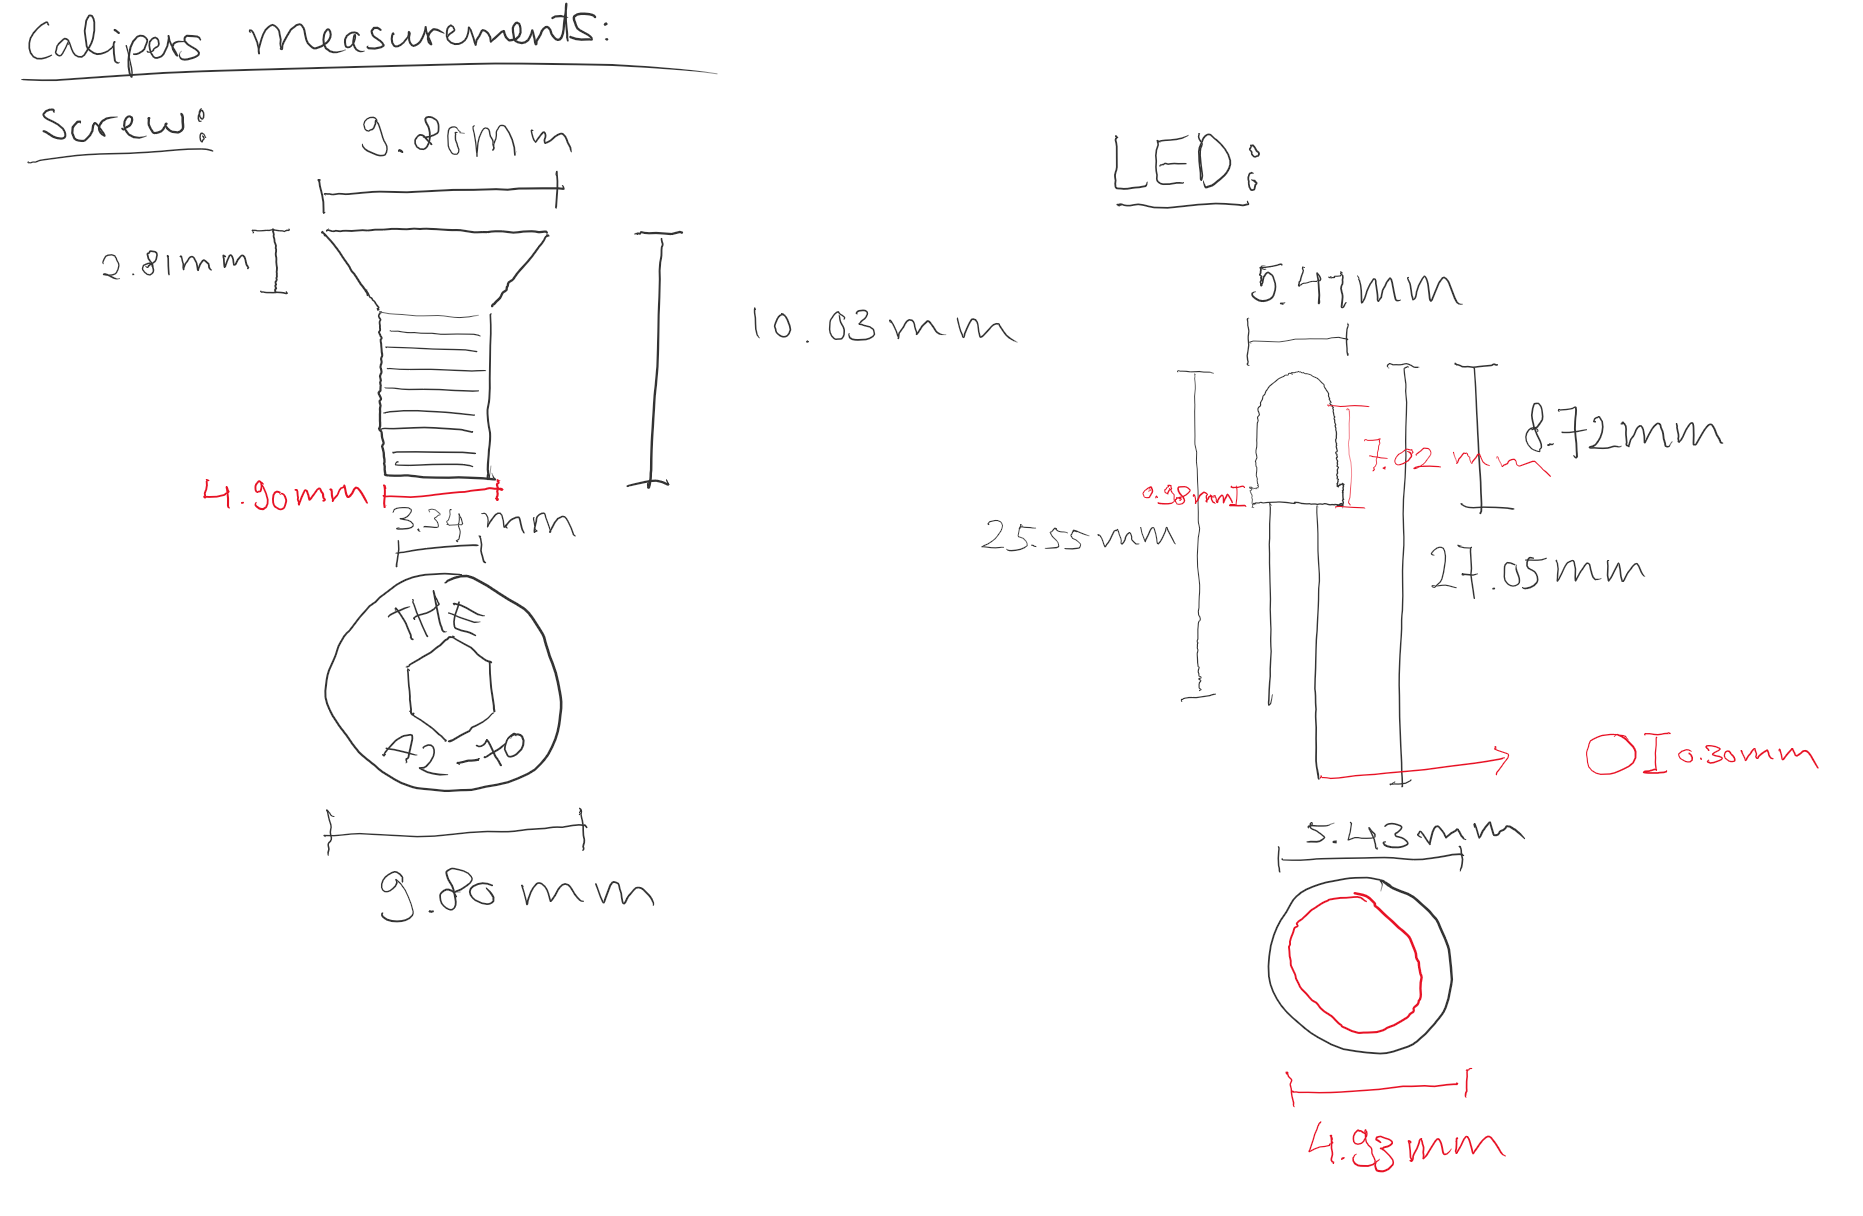 Calipers measurements:
Screw:
9.80mm
2.81mm
10.03mm
4.90mm
3.34 mm
THE
A2-70
9.80mm
LED:
5.47mm
8.72mm
7.02mm
0.98mm
25.55mm
27.05mm
0.30mm
5.43mm
4.93mm